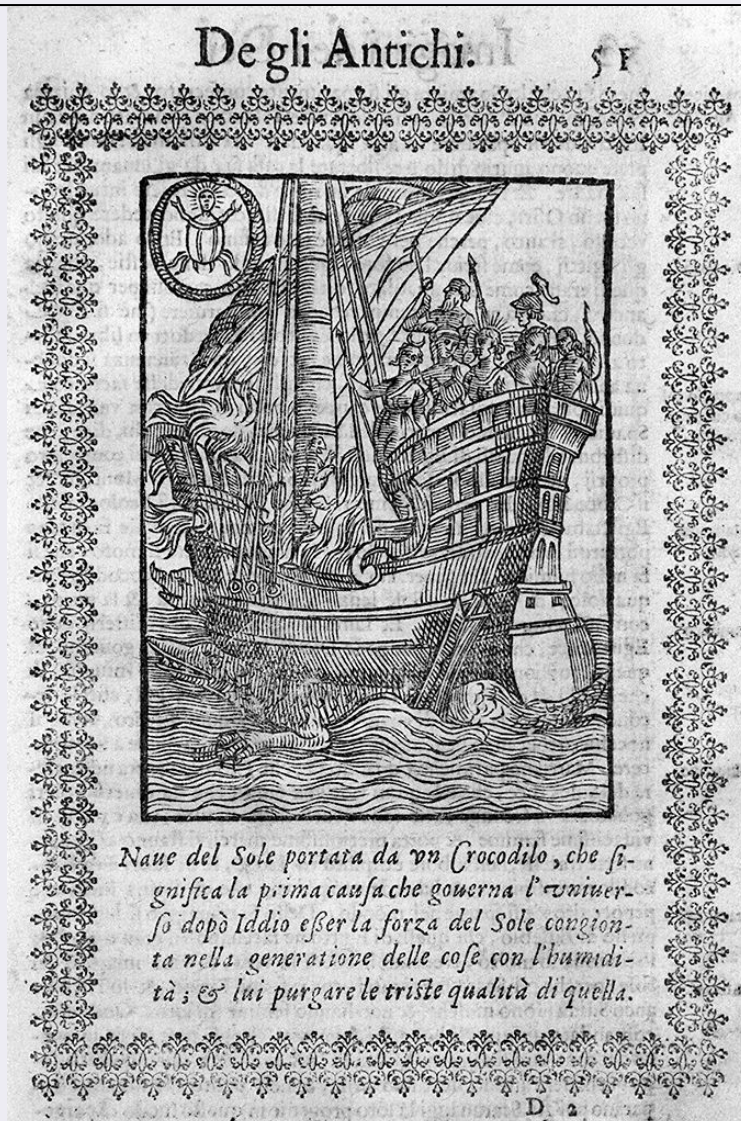 De gli Antichi. 51
Naue del Sole portata da vn Crocodilo, che ſi-
gnifica la prima cauſa che gouerna l'vniuer-
ſo dopò Iddio eſſer la forza del Sole congion-
ta nella generatione delle coſe con l'humidi-
tà; & lui purgare le triſte qualità di quella.
D 2